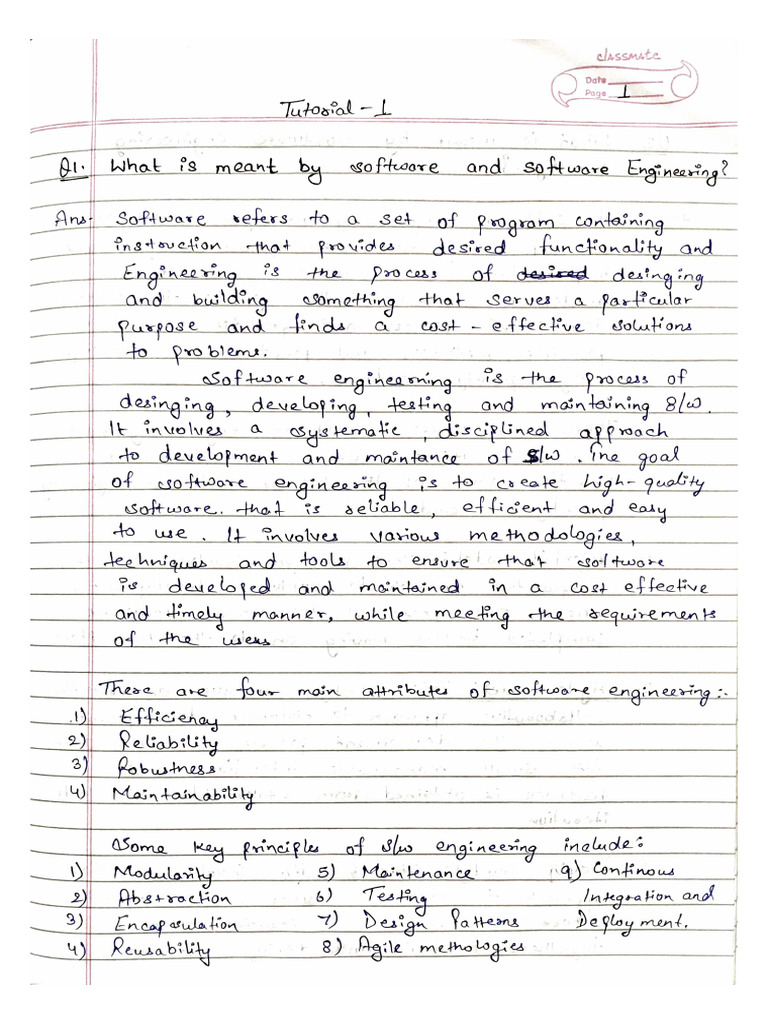 classmate
Date
Page 1
Tutorial - 1
Q1. What is meant by software and software Engineering?
Ans- Software refers to a set of program containing
instruction that provides desired functionality and
Engineering is the process of desired desinging
and building something that serves a particular
purpose and finds a cost-effective solutions
to problems.
Software engineerning is the process of
desinging, developing, testing and maintaining S/w.
It involves a systematic, disciplined approach
to development and maintance of S/w. The goal
of software engineering is to create high-quality
software. that is reliable, efficient and easy
to use. It involves various methodologies,
techniques and tools to ensure that software
is developed and maintained in a cost effective
and timely manner, while meeting the requirements
of the users
There are four main attributes of software engineering:-
1) Efficiency
2) Reliability
3) Robustness
4) Maintainability
Some key principles of S/w engineering include:
1) Modularity 5) Maintenance 9) Continous
2) Abstraction 6) Testing Integration and
3) Encapsulation 7) Design Patterns Deployment.
4) Reusability 8) Agile methologies